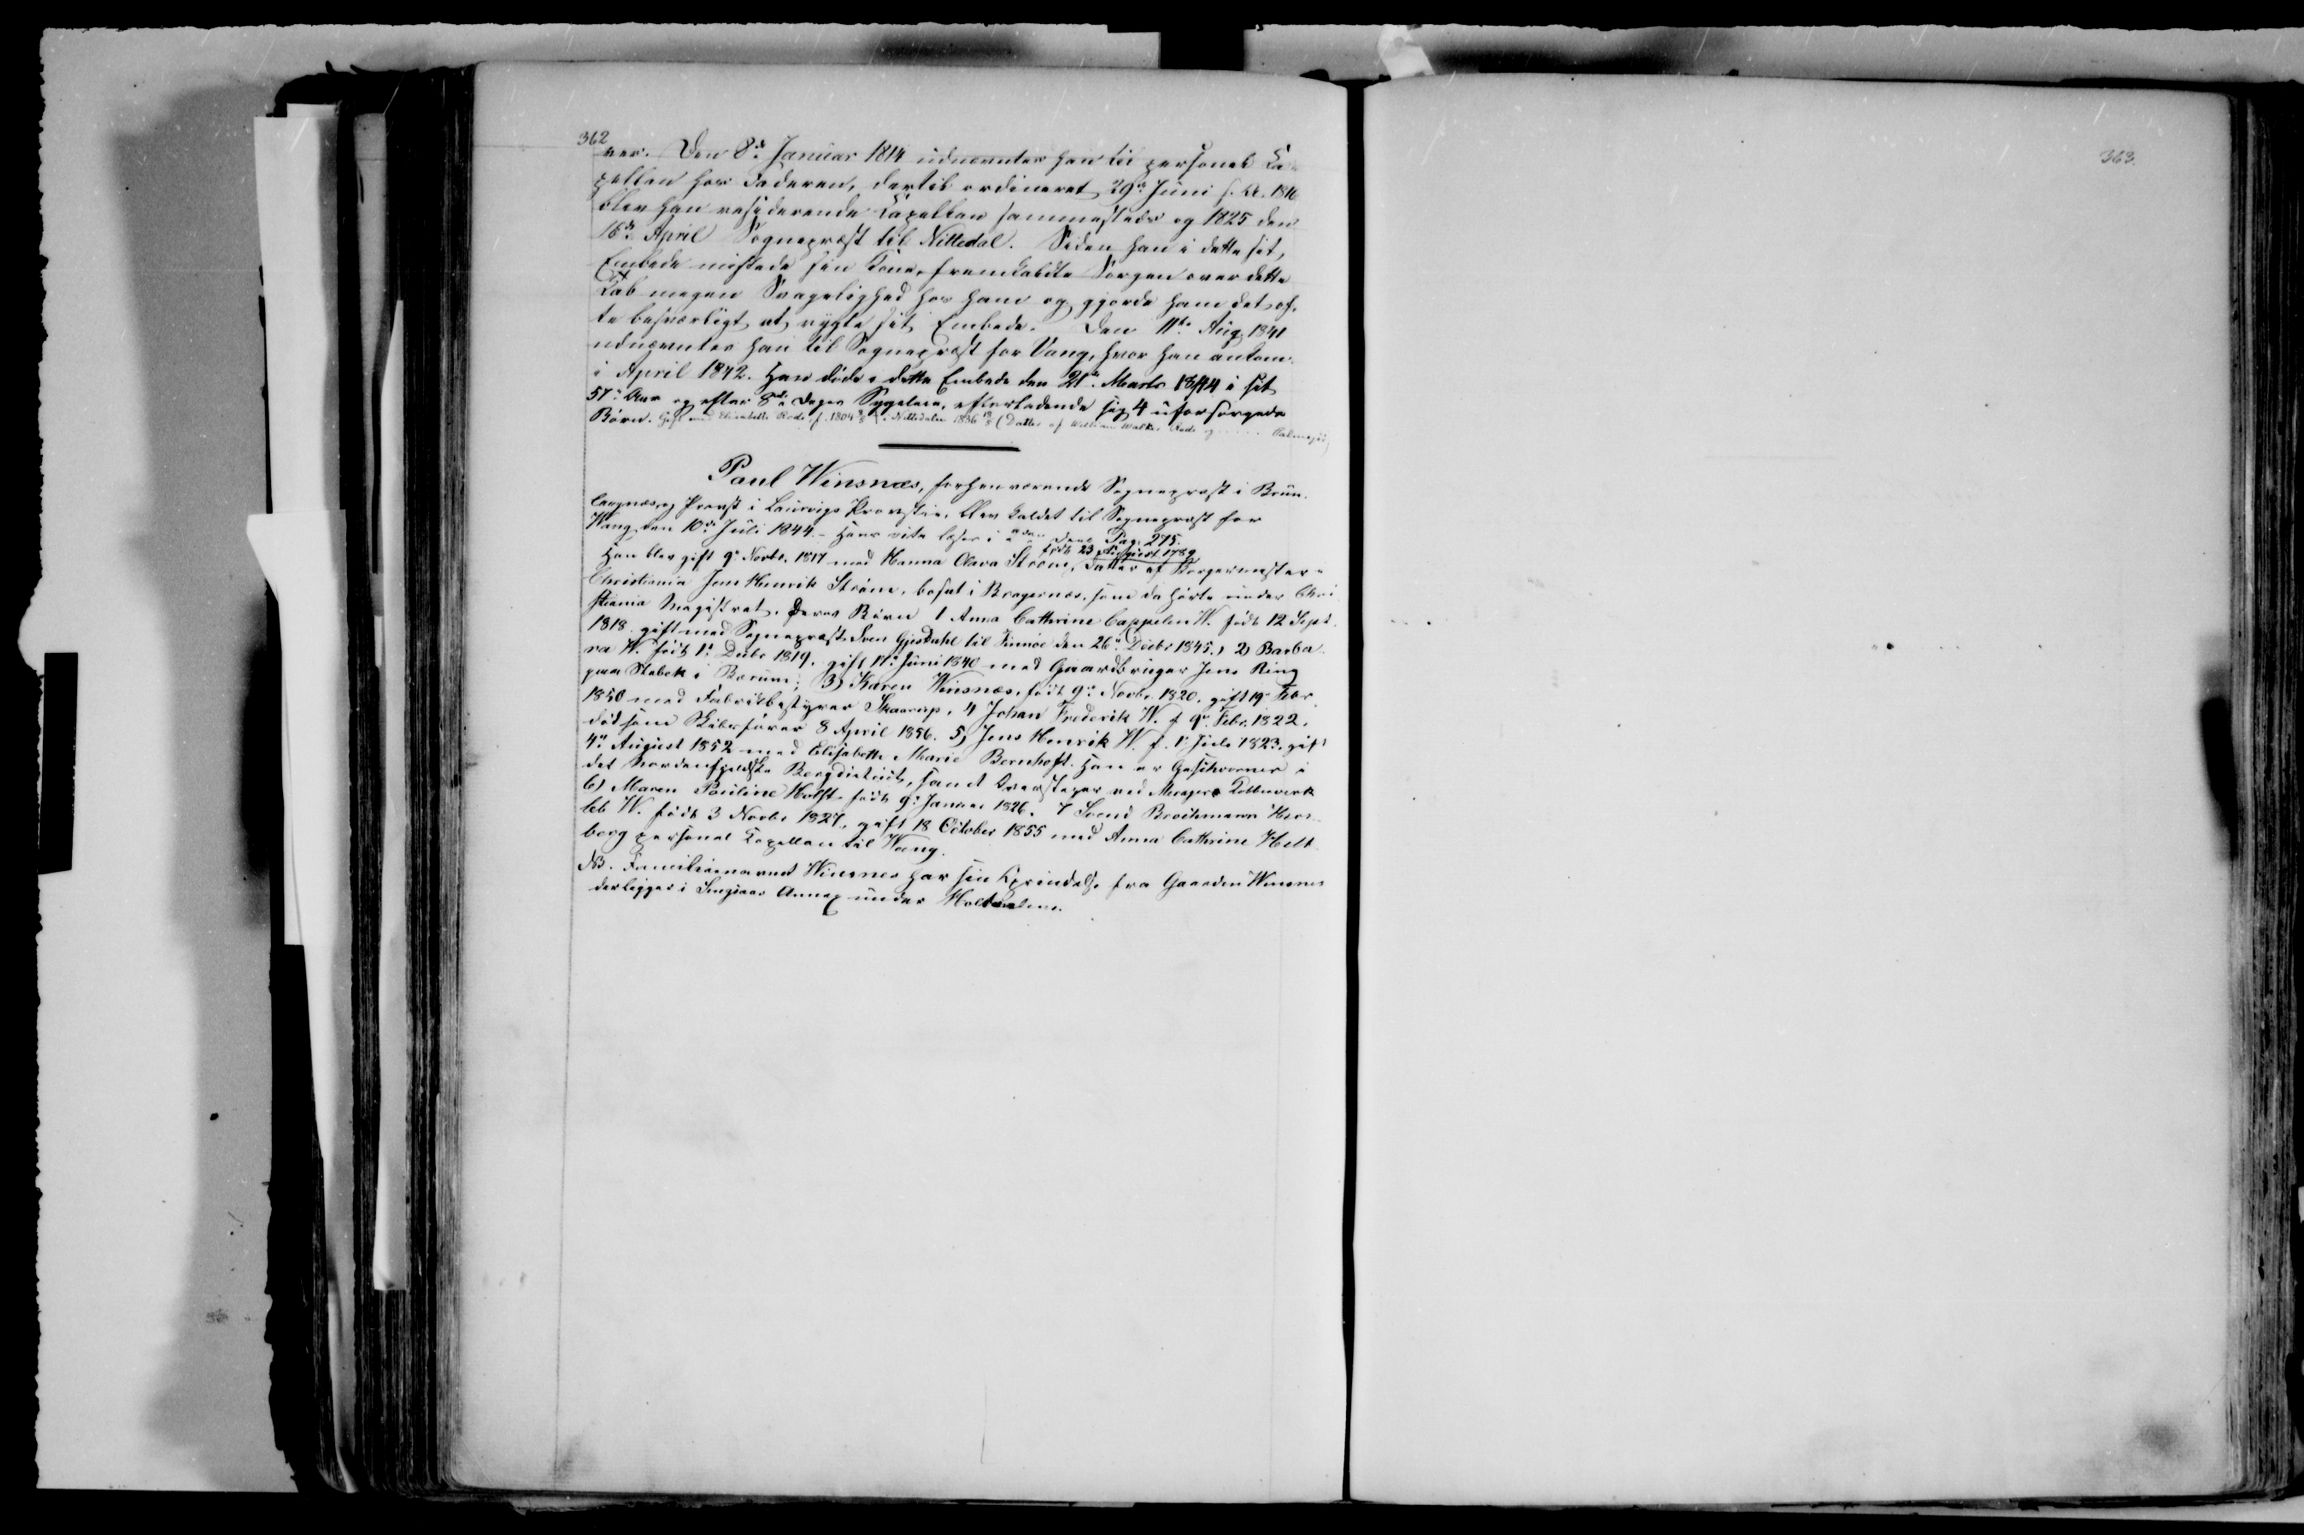 362
ver. Den 8de Januar 1814 udnævntes han til personel Ca-
pellan hos Faderen, dertil ordineret 29de Juni s. A. 1816
blev han residerende Capellan sammesteds og 1825 den
16de April Sognepræst til Nittedal. Siden han i dette sit
Embede mistede sin Kone, fremkaldte Sorgen over dette
Tab megen Svagelighed hos ham og gjorde ham det of-
te besværligt at røgte sit Embede. Den 11te Aug 1841
udnævntes han til Sognepræst for Vang, hvor han ankom
i April 1842. Han døde i dette Embede den 21de Marts 1844 i sit
57de Aar og efter 8te Dages Sygeleie, efterladende sig 4 uforsørgede
Børn. Gift med Elisabeth Rode f. 1804 i Nittedalen 1836 (Datter af William Walker Rode og
Paul Winsnæs, forhenværende Sognepræst i Brun-
langnæs og Provst i Laurvigs Provstie, blev kaldet til Sognepræst for
Wang den 10de Juli 1844. - Hans vita læses i Pag. 275.
født 23 August 1789
Han blev gift 9de Novbr. 1817 med Hanna Clara Strøm, Datter af Borgermester i
Christiania Jens Henrik Strøm, bosat i Bragernæs, som da hørte under Chri-
stiania Magistrat. Deres Børn 1 Anna Cathrine Cappelen W. født 12 Sept.
1818. gift med Sognepræst Sven Gjesdahl til Finnøe den 26de Decbr 1845., 2) Barba-
ra W. født 1de Decbr 1819. gift 17de Juni 1840 med Gaardbruger Jens Ring
paa Stabek i Bærum; 3) Karen Winsnæs, født 9de Novbr. 1820. gift 19de Febr
1850 med Fabrikbestyrer Skaarup, 4 Johan Frederik W. f 9de Febr. 1822.
død som Skibsfører 8 April 1856. 5) Jens Henrik W. f. 1 Juli 1823. gift
4de August 1852 med Elisabeth Marie Bernhoft. Han er Geschworner i
det Nordenfjeldske Bergdistrict, samt
6) Maren Pauline Holst født 9de Januar 1826. 7 Svend Brochmann Her-
leb W. født 3 Novbr 1827, gift 18 October 1855 med Anna Cathrine Helt-
berg personel Kapellan til Wang.
NB. Familienavnet Winsnes har sin Oprindelse fra Gaarden Winsnes
der ligger i Singsaas Annex under Holtaalen.
363.